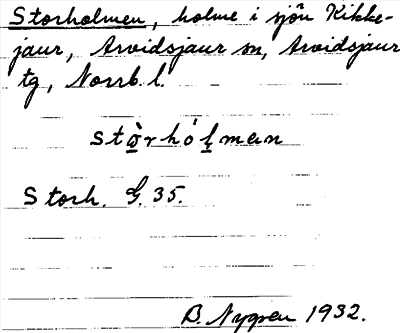 Storholmen, holme i sjön Kikke-
jaur, Arvidsjaur sn, Arvidsjaur
tg, Norrb. l.
stòrhólmen
Storh. G. 35.
B. Nygren 1932.